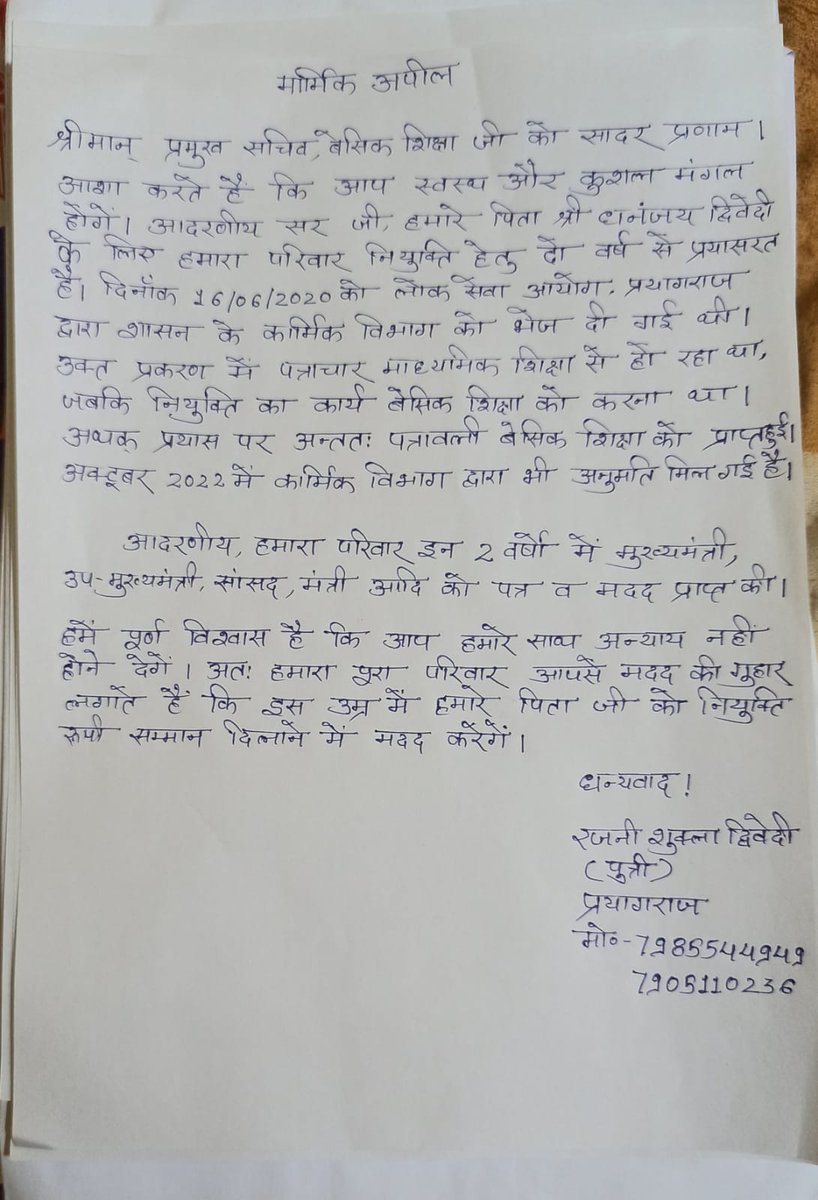 मार्मिक अपील
श्रीमान् प्रमुख सचिव, बेसिक शिक्षा जी को सादर प्रणाम।
आशा करते हैं कि आप स्वस्थ और कुशल मंगल
होंगें। आदरणीय सर जी, हमारे पिता श्री धनंजय द्विवेदी
के लिए हमारा परिवार नियुक्ति हेतु दो वर्ष से प्रयासरत
है। दिनाँक 16/06/2020 को लोक सेवा आयोग, प्रयागराज
द्वारा शासन के कार्मिक विभाग को भेज दी गई थी।
उक्त प्रकरण में पत्राचार माध्यमिक शिक्षा से हो रहा था,
जबकि नियुक्ति का कार्य बेसिक शिक्षा को करना था।
अथक् प्रयास पर अन्ततः पत्रावली बेसिक शिक्षा को प्राप्त हुई।
अक्टूबर 2022 में कार्मिक विभाग द्वारा भी अनुमति मिल गई है।
आदरणीय, हमारा परिवार इन 2 वर्षों में मुख्यमंत्री,
उप-मुख्यमंत्री, सांसद, मंत्री आदि को पत्र व मदद प्राप्त की।
हमें पूर्ण विश्वास है कि आप हमारे साथ अन्याय नहीं
होने देगें। अतः हमारा पूरा परिवार आपसे मदद की गुहार
लगाते हैं कि इस उम्र में हमारे पिता जी को नियुक्ति
रूपी सम्मान दिलाने में मदद करेंगें।
धन्यवाद!
रजनी शुक्ला द्विवेदी
(पुत्री)
प्रयागराज
मो०-7985544949
7905110236